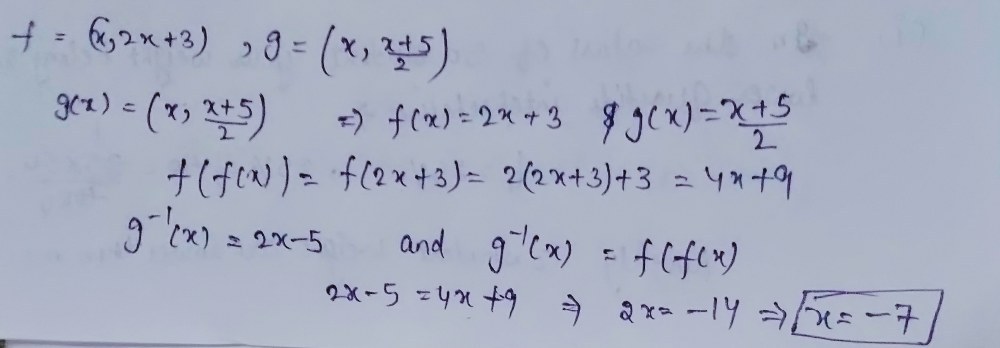 f = (x, 2x+3) , g = (x, x+5/2)
g(x) = (x, x+5/2) ⇒ f(x) = 2x+3 & g(x) = x+5/2
f(f(x)) = f(2x+3) = 2(2x+3)+3 = 4x+9
g⁻¹(x) = 2x-5 and g⁻¹(x) = f(f(x)
2x-5 = 4x+9 ⇒ 2x = -14 ⇒ x = -7